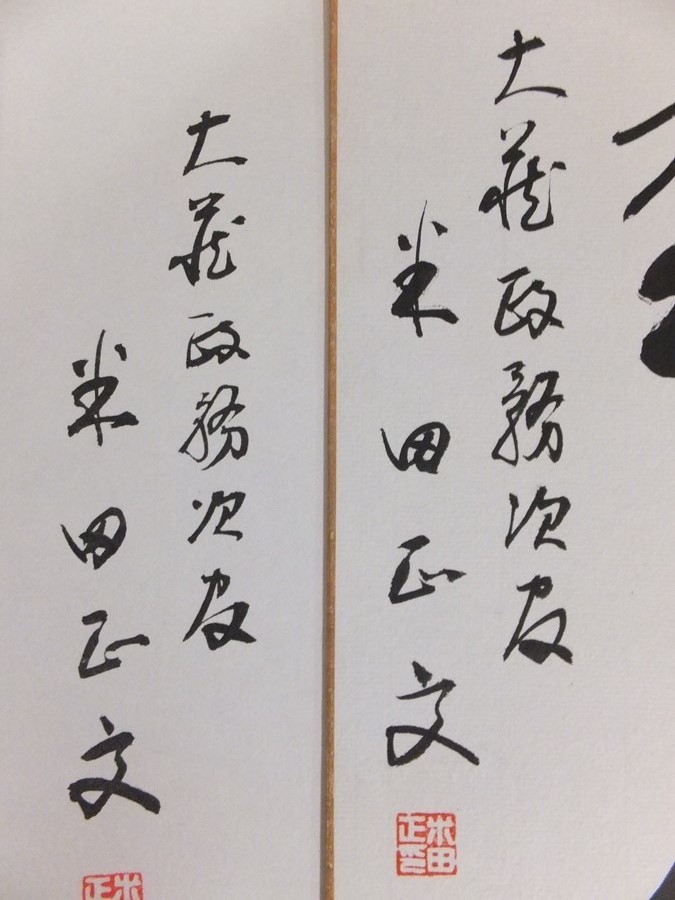 大蔵政務次官
米田正文
米田
正
大蔵政務次官
米田正文
米
正